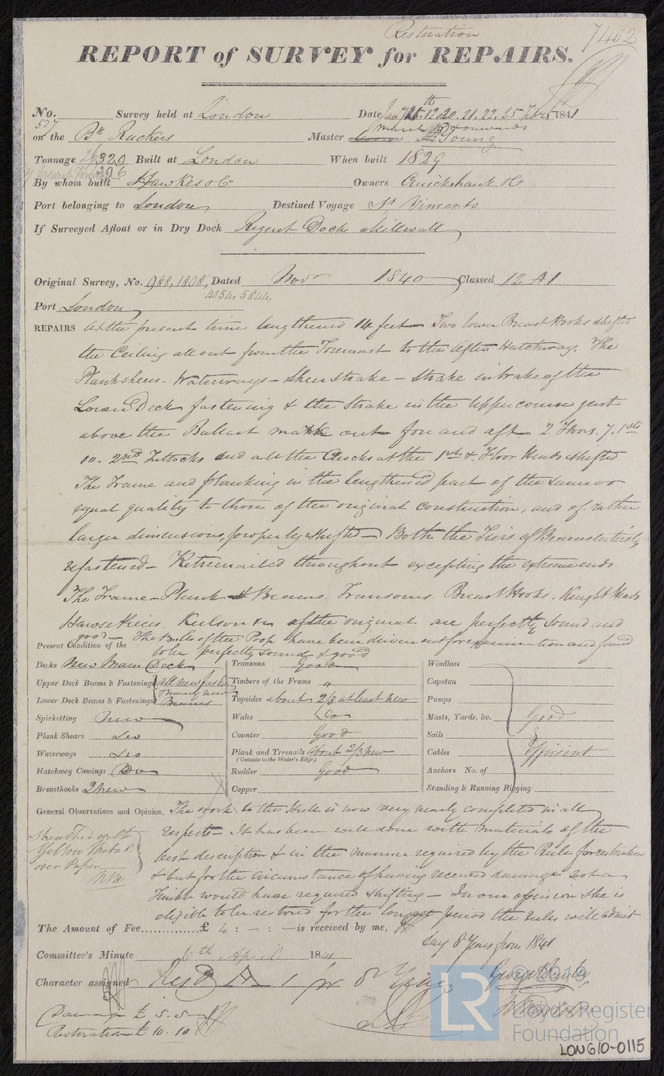 Restoration 7402
REPORT of SURVEY for REPAIRS.
No. 527 Survey held at London Date 1841
on the Bk Rackers Master Young
Tonnage 320 Built at London When built 1829
By whom built Hawkes & Co Owners Cruickshank & Co
Port belonging to London Destined Voyage St Vincents
If Surveyed Afloat or in Dry Dock Regent Dock Millwall
Original Survey, No. Dated Novr 1840 Classed 12 A1
4054. 5844
Port London
REPAIRS At the present time lengthened 14 feet - Two lower Breast Hooks shifted
the Ceiling all out from the Foremast to the After Hatchway. The
Planksheers. Waterways - Sheerstrake - Strake in wake of the
Lower Deck fastening & the Strake in the upper course just
above the Ballast mark out fore and aft 2 Floors. 7. 1sts
10. 2nd Futtocks and all the Chocks at the 1st & Floor Heads shifted
The Frame and planking in the lengthened part of the same or
equal quality to those of the original construction, and of rather
larger dimensions, properly shifted - Both the Tiers of Beams entirely
refastened - Retrenailed throughout excepting the extreme ends
The Frame - Plank & Beams. Transoms Breast Hooks. Knight Heads
Hawse Pieces. Keelson &c of the original are perfectly sound and
good - The Bolts of the Poop have been driven out for examination and found
to be perfectly sound & good
Present Condition of the
Decks New Main Deck Transoms Good Windlass
Upper Deck Beams & Fastenings All new fastened Timbers of the Frame " Capstan
Lower Deck Beams & Fastenings & mainly new Beams Topsides about 2/3 at least New Pumps
Spirketting New Wales Do Masts, Yards, &c. Good
Plank Sheers Do Counter Good Sails
Waterways Do Plank and Treenails About 2/3 New Cables Efficient
(Outside to the Water's Edge)
Hatchway Comings Do Rudder Good Anchors No. of
Breasthooks 2 New Copper Standing & Running Rigging
General Observations and Opinion, The work to the Hull is now very nearly completed in all
respects - It has been well done with materials of the
best description & in the manner required by the Rule for restoration
& but for the circumstance of having received damage not a
Timber would have required shifting - In our opinion she is
eligible to be restored for the longest period the Rules will admit
Sheathed with
Yellow Metal
over Paper
The Amount of Fee £ 4 : - : - is received by me,
say 8 Years from 1841
Committee's Minute 6th April 1841
Character assigned Rest A 1 for 8 Years
Damage £ 5.5
Restoration £ 10.10
LR
© 2019
Lloyd's Register
Foundation
LON610-0115